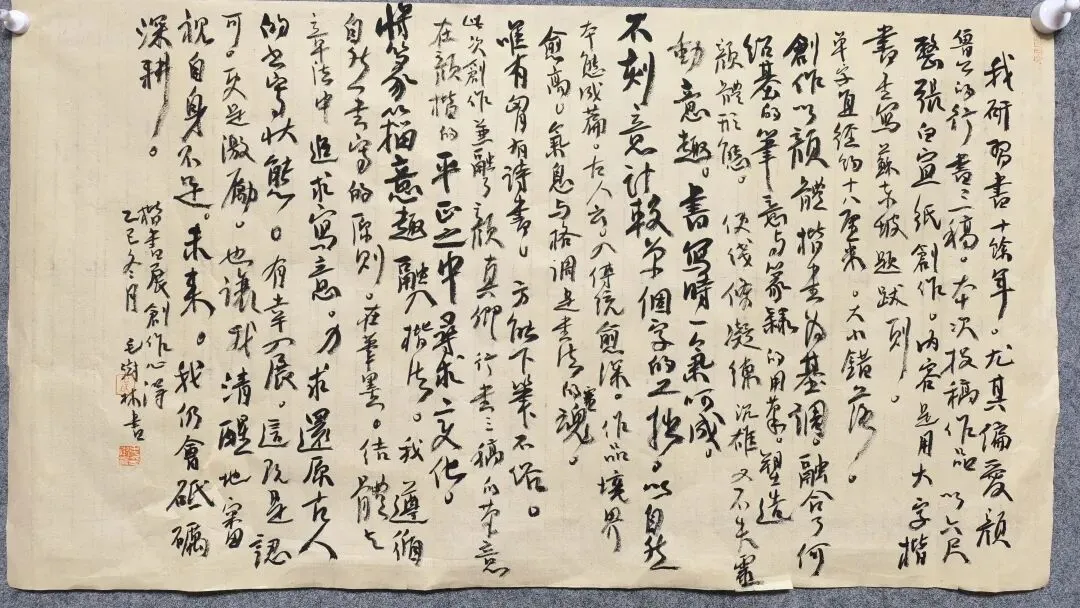 我研習書十餘年。尤其偏愛顏
魯公的行書三稿。本次投稿作品以六尺
整張白宣紙創作。内容是用大字楷
書書寫蘇東坡題跋一則。
單字直径約十八厘米。大小錯落。
創作以顏體楷書为基調。融合了何
紹基的筆意与篆隸的用筆。塑造
顏體形態。使线條凝練沉雄又不失靈
動意趣。書寫時一氣呵成。
不刻意計較單個字的工拙。以自然
本態成篇。古人云入傳統愈深。作品境界
愈高。氣息与格調是書法的靈魂。
唯有胃有诗書。方能下筆不俗。
此次創作兼融了顏真卿行書三稿的筆意
在顏楷的平正之中尋求变化。
將篆籀意趣融入楷法。我遵循
自然書寫的原則。在筆墨。结體与
章法中追求寫意。力求還原古人
的书寫状態。有幸入展。這既是認
可。更是激勵。也讓我清醒地審
視自身不足。未来。我仍會砥礪
深耕。
楷書展創作心得
乙巳冬月 樹林書